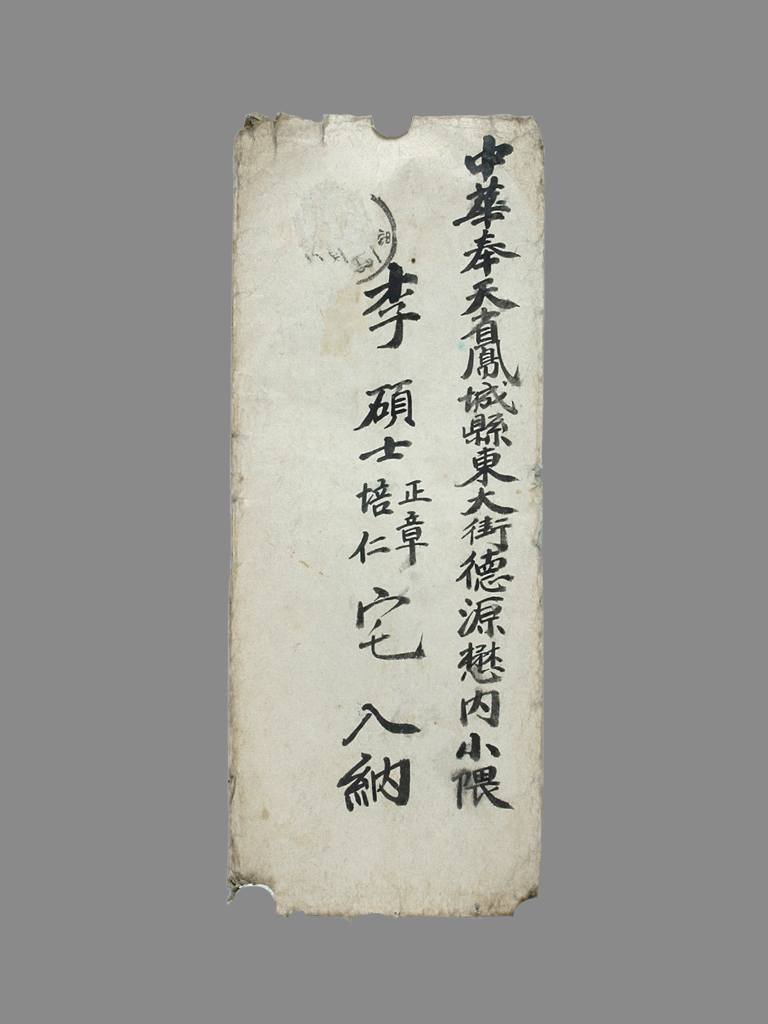 中華奉天省鳳城縣東大街德源懋內小隈
李 碩士 正章 培仁 宅 入納